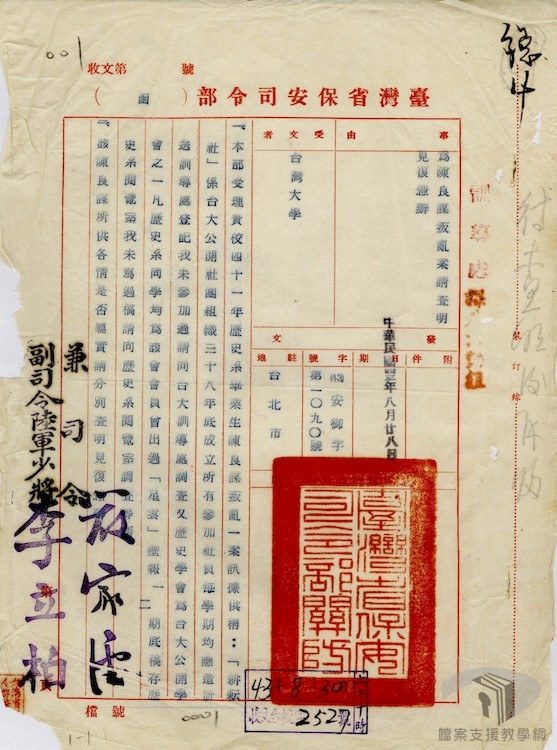 收文第 號
臺灣省保安司令部(函)
事由
為陳良謀叛亂案請查明見復憑辦
受文者
台灣大學
發文
附件
日期
中華民國四三年八月廿八日
字號
安御字
第一〇九〇號
駐地
台北市
一、本部受理貴校四十一年歷史系畢業生陳良謀叛亂一案訊據供稱：「耕耘
社」係台大公開社團組織三十八年底成立所有參加社員每學期均應造冊
送訓導處登記我未參加過請向台大訓導處調查又歷史學會為台大公開學
會之一凡歷史系同學均為該會會員曾出過「星雲」壁報一二期底稿存歷
史系閱電室我未寫過稿請向歷史系閱電室調查
二、該陳良謀所供各情是否屬實請分別查明見復
兼司令
副司令陸軍少將
李立柏
訓導處
臺灣省保安司令部關防
43 8 30
2527
裝訂線
檔號
001
0001
1-1
檔案支援教學網